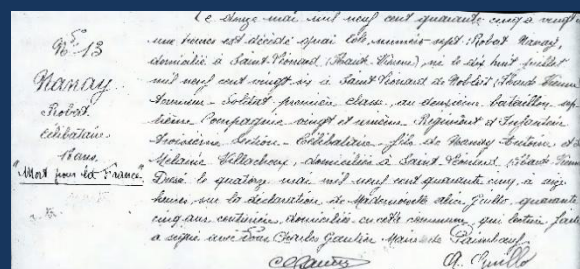 N° 13
Nanay
Robert
célibataire
18 ans
"Mort pour la France"
Le douze mai mil neuf cent quarante cinq à vingt
une heures est décédé quai , numéro sept : Robert Nanay,
domicilié à Saint-Léonard (Haute-Vienne), né le dix huit juillet
mil neuf cent vingt six à Saint Léonard de Noblat (Haute Vienne
Soldat première classe, au deuxième bataillon
Compagnie vingt et unième Régiment d'Infanterie
troisième Section - Célibataire - fils de Nanay Antoine et d
Mélanie Villechoux, domiciliés à Saint Léonard (Haute Vienne
Dressé le quatorze mai mil neuf cent quarante cinq, à
heures, sur la déclaration de Mademoiselle Alice Guillo, quarante
cinq ans, domiciliée en cette commune, qui lecture faite
a signé avec Nous Charles Gautier Maire de Paimboeuf
A. Guillo